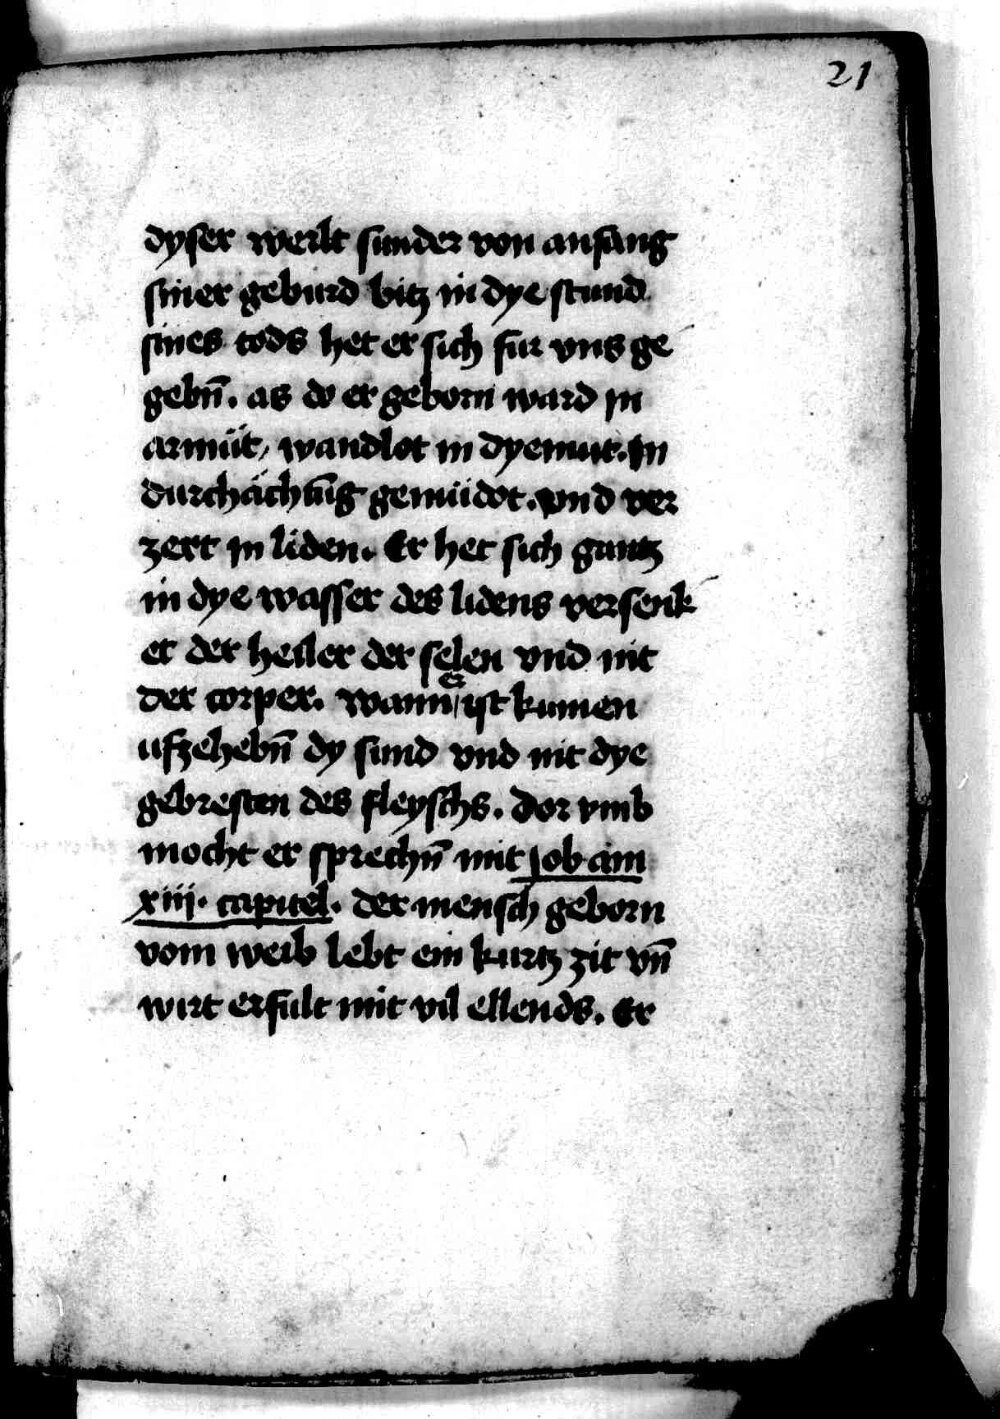 21
dyser werlt sunder von anfang
siner geburd bitz in dye stund
sines tods het er sich fur vns ge
gebn̄. as do er geborn ward in
armüt, wandlot in dyemut. In
durchächtūg gemüdot. vnd ver
zert in liden. Er het sich gantz
in dye wasser des lidens versenk
et der heiler der selen vnd nit
der corper. wann er ist kumen
ufzehebn̄ dy sund vnd nit dye
gebresten des fleyschs. Dor vmb
mocht er sprechn̄ mit job am
xiij. capitel. der mensch geborn
vom weib lebt ein kurtz zit vn̄
wirt erfult mit vil ellends. Er